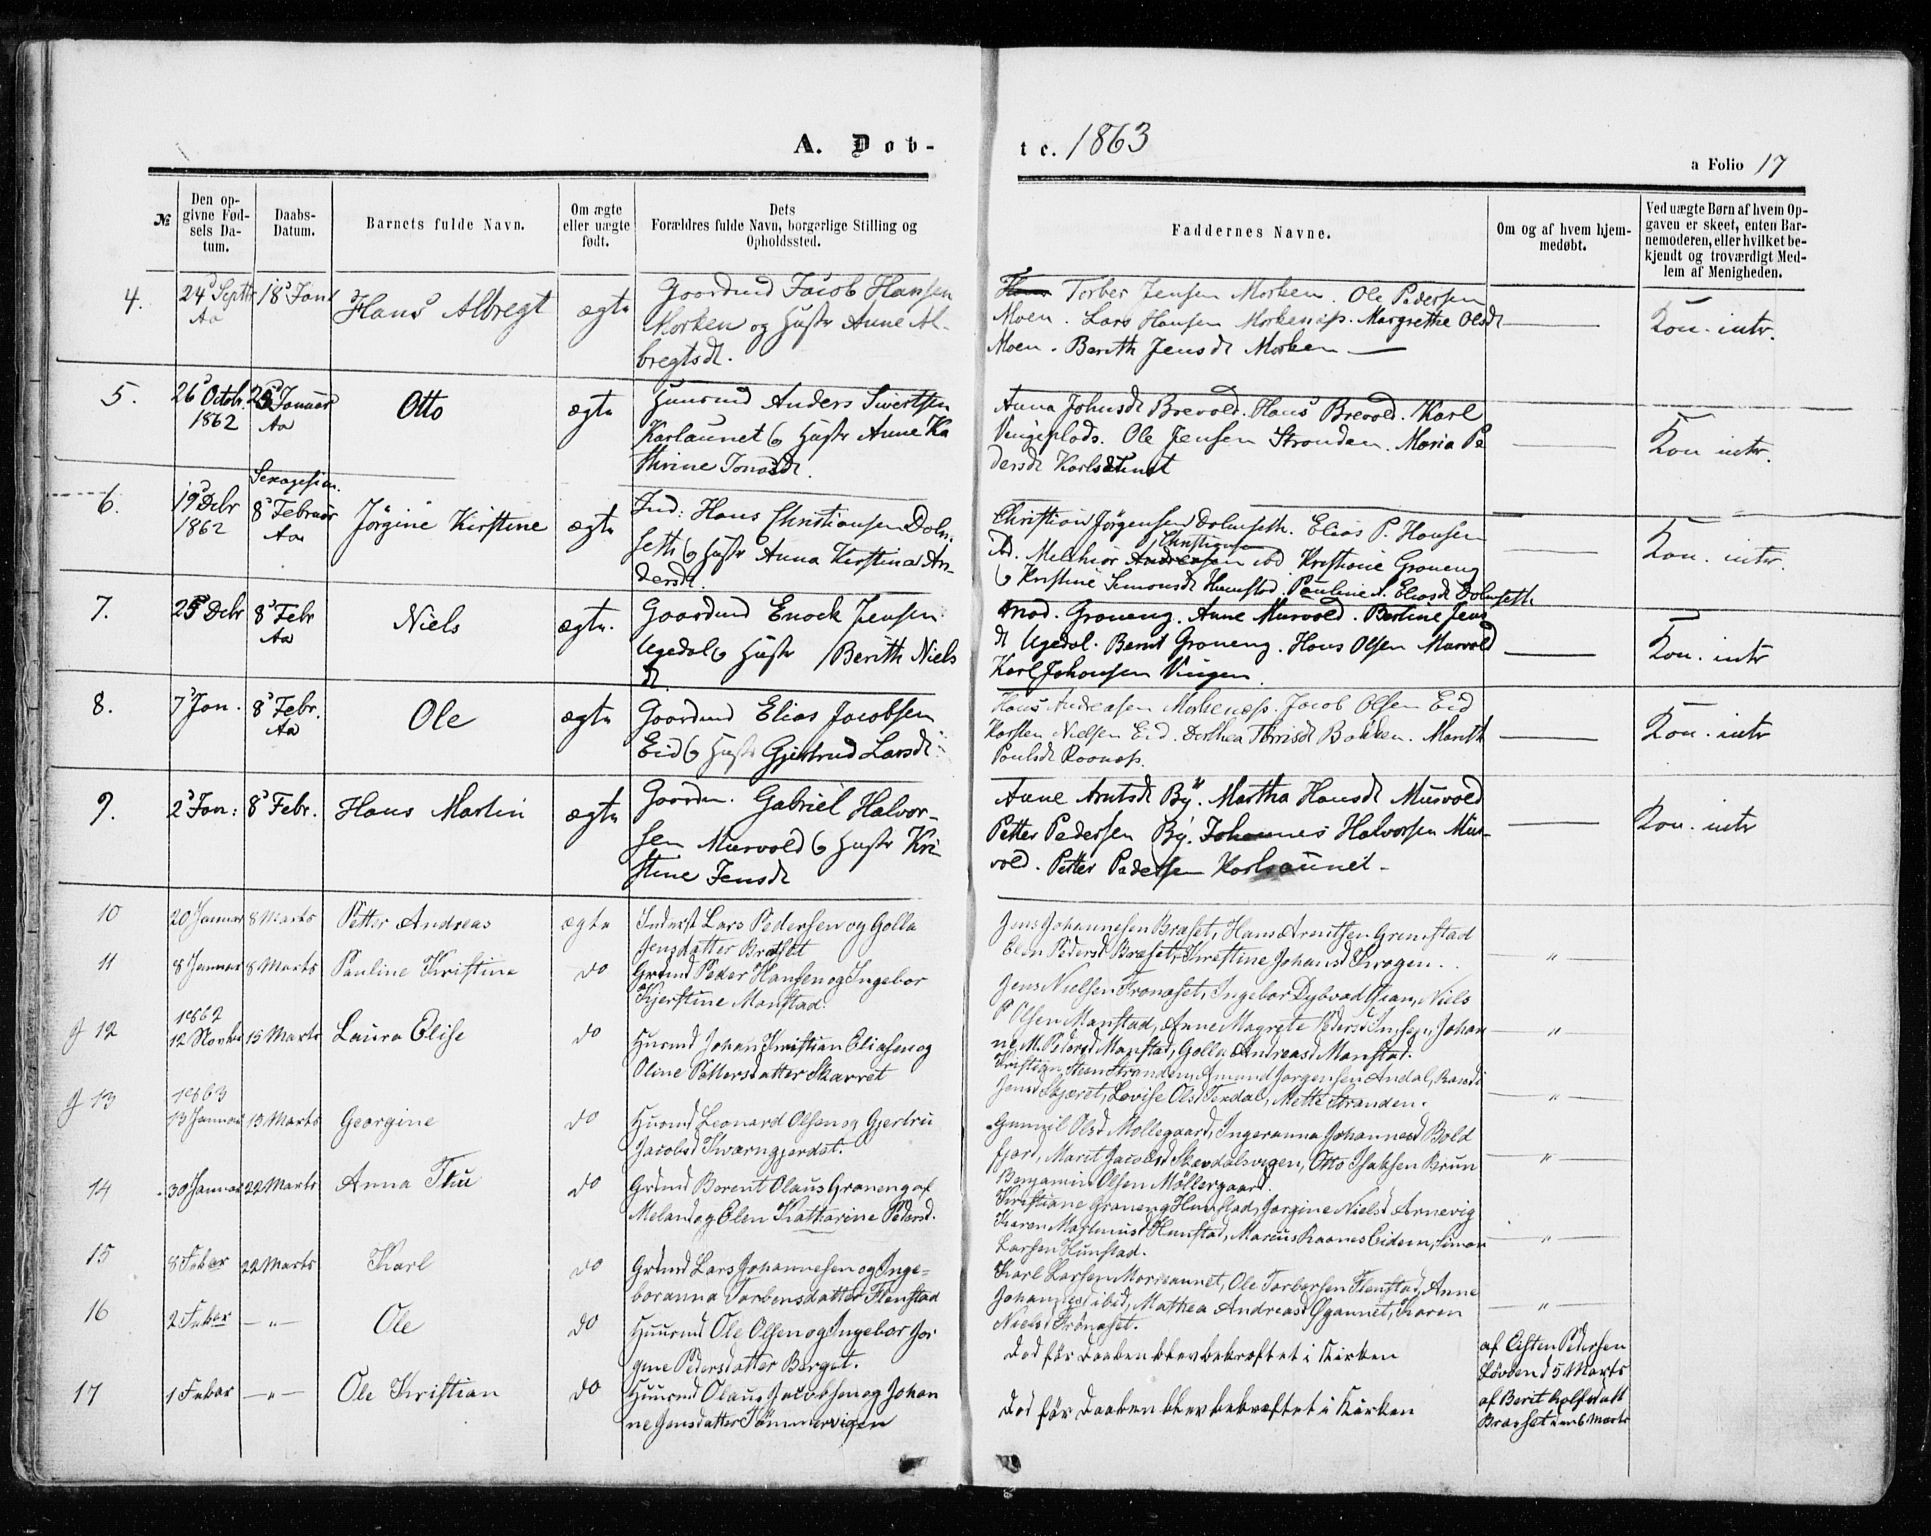 A. Døb-
te. 1863
a Folio 17
№
Den op-
givne Fød-
sels Da-
tum.
Daabs-
Datum.
Barnets fulde Navn.
Om ægte
eller uægte
født.
Dets
Forældres fulde Navn, borgerlige Stilling og
Opholdssted.
Faddernes Navne.
Om og af hvem hjem-
medøbt.
Ved uægte Børn af hvem Op-
gaven er skeet, enten Bar-
nemoderen, eller hvilket be-
kjendt og troværdigt Med-
lem af Menigheden.
4.
24 Septbr
Aa
18 Jan
Hans Albregt
ægte
Gaardmd Jacob Hansen
Morken og Hustr Anne Al-
bregtsdt.
Torber Jensen Morken. Ole Pedersen
Moen. Lars Hansen Morkenæs. Margrethe Olsdt
Moen. Berith Jensdt Morken
Kon. intr.
5.
26 Octobr.
1862
25 Januar
Aa
Otto
ægte
Huusmd Anders Sivertsen
Karlaunet & Hustr Anne Ka
thrine Jonasdt.
Anna Johnsdt Brevold. Hans Brevold. Karl
Vingeplads. Ole Jensen Stranden. Maria Pe
dersdt Karlsaunet
Kon intr.
6.
19 Debr
1862
Sexagesim.
8 Februar
Aa
Jørgine Kirstine
ægte
Ind: Hans Christiansen Dolm-
seth & Hustr Anna Kirstina An-
dersdt.
Christian Jørgensen Dolmseth. Elias P. Hansen
ibd. Melchior Christiansen ibd Kristiane Graneng
& Kristine Simonsdt Hunstad. Pauline A. Eliasdt Dolmseth
Kon. intr.
7.
25 Debr
8 Febr
Aa
Niels
ægte.
Gaardmd Enock Jensen
Ugedal & Hustr Berith Niels
dt
Mad. Graneng. Anne Murvold. Bertine Jens
dt Ugedal. Bernt Graneng. Hans Olsen Murvold
Karl Johansen Vingen.
Kon. intr
8.
7 Jan.
8 Febr.
Aa
Ole
ægte
Gaardmd Elias Jacobsen
Eid & Hustr Gjertrud Larsdt
Hans Andreasen Morkenæs. Jacob Olsen Eid
Karsten Nielsen Eid. Dorthea Torrisdt Bakken. Marith
Paulsdt Raanæs.
Kon. intr
9.
2 Jan:
8 Febr.
Hans Martin
ægte
Gaardm. Gabriel Halvor-
sen Murvold & Hustr Kri
stine Jensdt
Anne Arntsdt By. Martha Hansdt Murvold
Petter Pedersen By. Johannes Halvorsen Mur-
vold. Petter Pedersen Karlsaunet-
Kon. intr
10
20 Januar
8 Marts
Petter Andreas
ægte
Inderst Lars Pedersen og Golla
Jensdatter Bræset
Jens Johannesen Bræset, Hans Arentsen Grimstad
Elen Pedersd Bræset, Kirstine Johansd Krogen.
11
8 Januar
8 Marts
Pauline Kristine
do
Grdmd Peder Hansen og Ingebor
Kjerstine Manstad.
Jens Nielsen Tronæset, Ingebor Dybvad Gian, Niels
P Olsen Manstad, Anne Magrete Pedersd Imsen, Johan
ne M. Pedersd Manstad, Golla Andreasd Manstad.
"
g 12
1862
12 Novbr
15 Marts
Laura Elise
do
Husmd Johan Kristian Eliasen og
Oline Pettersdatter Skavret
Kristian Steen Stranden, Amund Jørgensen Andal, Randi
Jensd Skjæret, Lovise Olsd Terdal, Mette Stranden.
"
g 13
1863
13 Januar
13 Marts
Georgine
do
Husmd Leonard Olsen og Gjertru
Jacobsd Kvarngjerdet.
Gunnil Olsd Møllegaard, Ingeranna Johannesd Bold
fjord, Marit Jacobsd Skardalsvigen, Otto Isaksen Brun
Benjamin Olsen Møllergaard.
"
14
30 Januar
22 Marts
Anna Thu
do
Grdmd Berent Olaus Graneng af
Meland og Elen Katharine Pedersd.
Kristiane Graneng Hunstad, Jørgine Nielsd Arnevig
Karen Martinusd Hunstad, Marius Raanes Eidem, Simon
Larsen Hunstad.
"
15
8 Febar
22 Marts
Karl
do
Grdmd Lars Johannesen og Inge-
boranna Torbensdatter Flenstad
Karl Larsen Morkaunet, Ole Torbersen Flenstad, Anne
Johannesd ibid, Mathea Andreasd Øyaunet, Karen
Nielsd Tronæset.
"
16
2 Febar
-"-
Ole
do
Huusmd Ole Olsen og Ingebor Jør
gine Pedersdatter Berget.
Død før Daaben blev bekræftet i Kirken
af Eisten Pedersen
Løvden d 5 Marts
17
1 Febar
-"-
Ole Kristian
do
Huusmd Olaus Jacobsen og Johan
ne Jensdatter Tømmervigen
Død før Daaben blev bekræftet i Kirken
af Berit Rolfsdatt
Bræset den 6 Marts